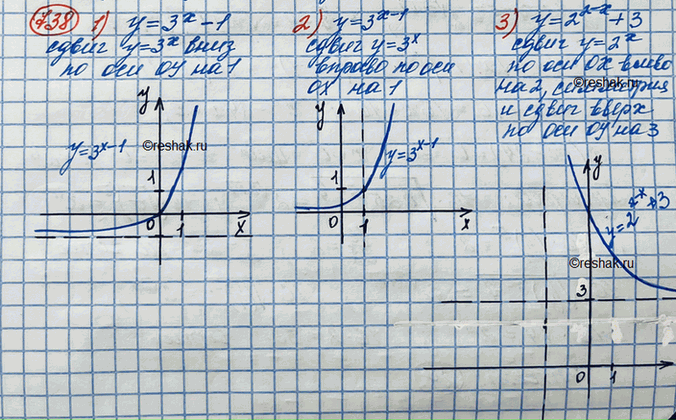 738 1) y=3ˣ-1
сдвиг y=3ˣ вниз
по оси OY на 1
y
y=3ˣ⁻¹
©reshak.ru
1
0
1
x
2) y=3ˣ⁻¹
сдвиг y=3ˣ
вправо по оси
OX на 1
y
y=3ˣ⁻¹
1
0
1
x
3) y=2²⁻ˣ+3
сдвиг y=2ˣ
по оси OX влево
©reshak.ru
на 2, симметрия
и сдвиг вверх
по оси OY на 3
y
©reshak.ru
3
0
1